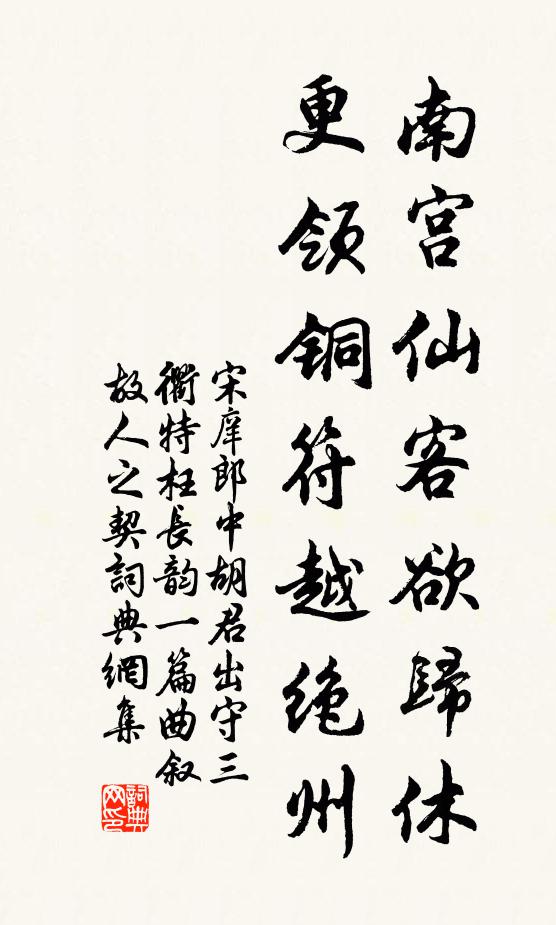 南宫仙客欲歸休
更领铜符越绝州
宋庠郎中胡君出守三
衢特枉長韵一篇曲叙
故人之契詞典網集
詞典网印